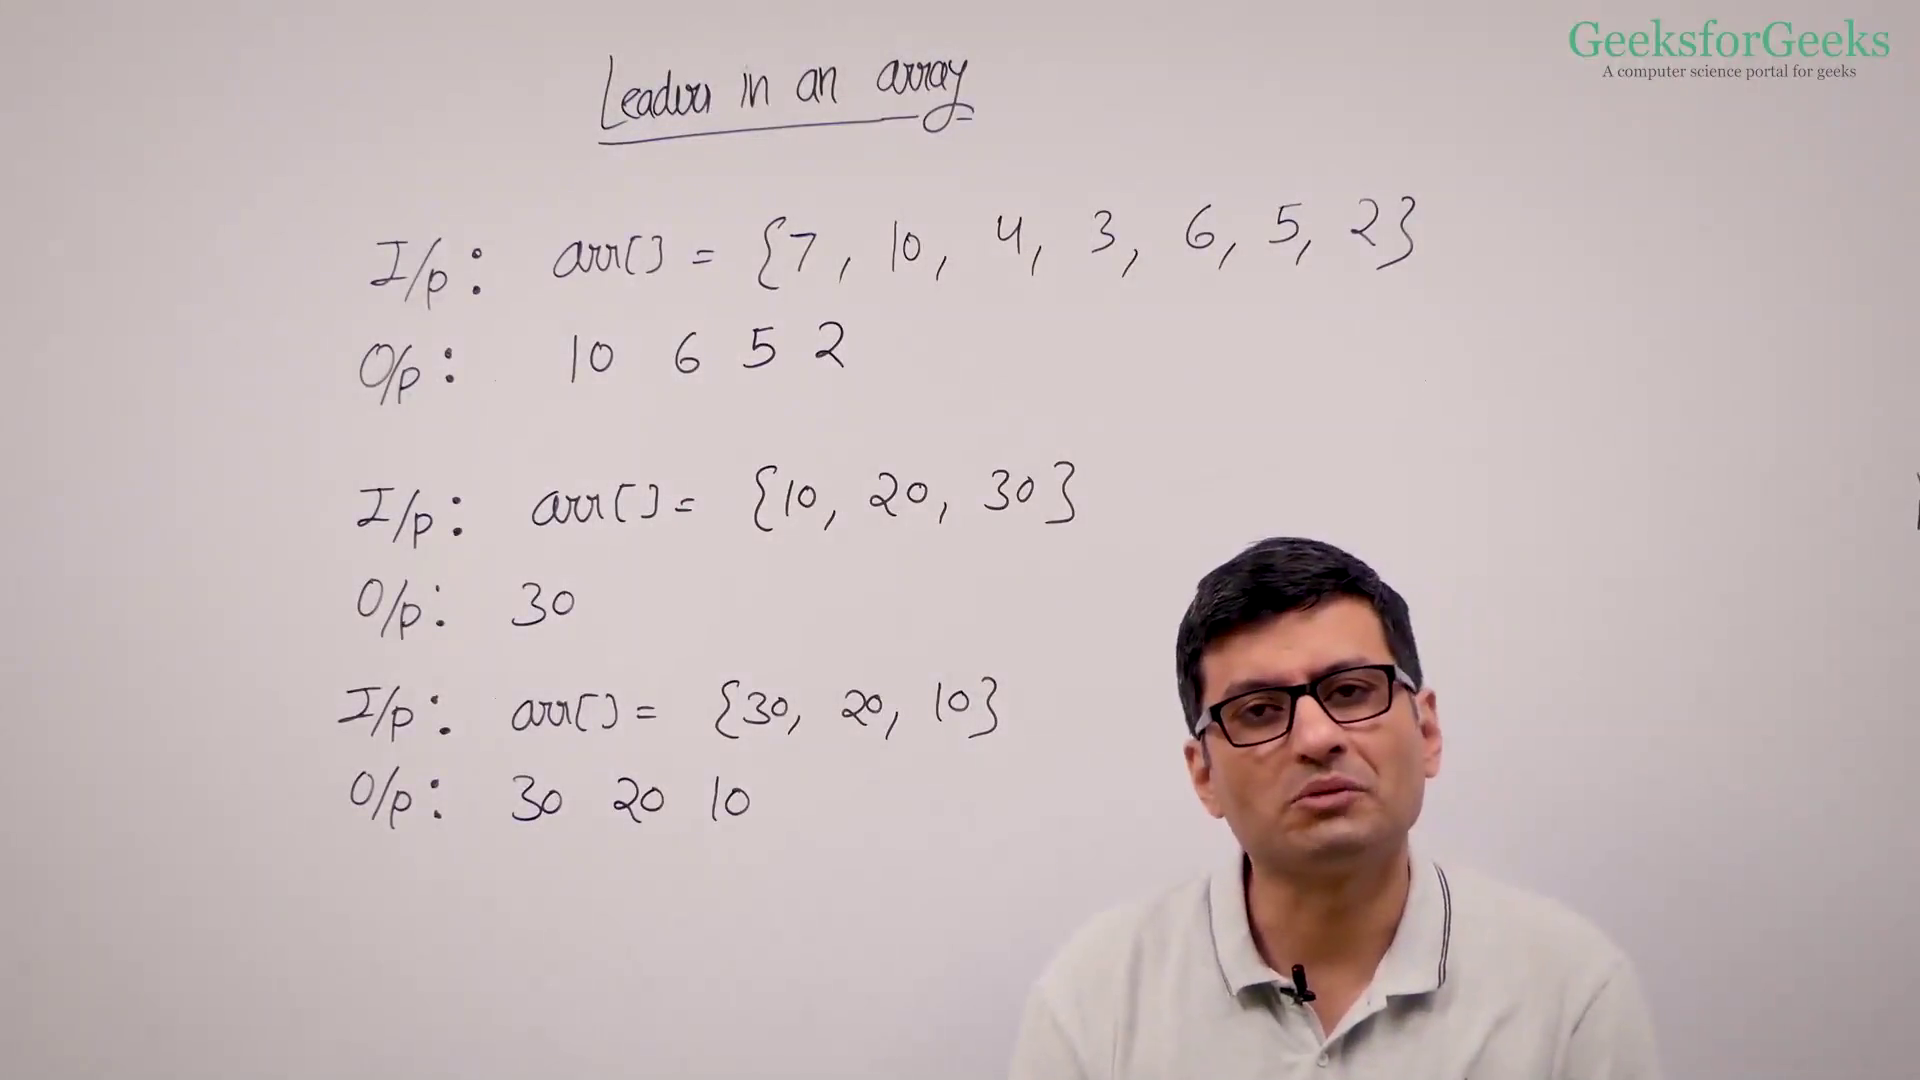 GeeksforGeeks
A computer science portal for geeks
Leaders in an array
I/p: arr[] = {7, 10, 4, 3, 6, 5, 2}
O/p: 10 6 5 2
I/p: arr[] = {10, 20, 30}
O/p: 30
I/p: arr[] = {30, 20, 10}
O/p: 30 20 10